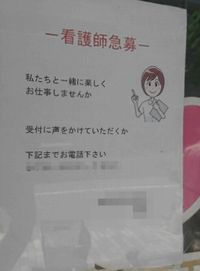 －看護師急募－
私たちと一緒に楽しく
お仕事しませんか
受付に声をかけていただくか
下記までお電話下さい